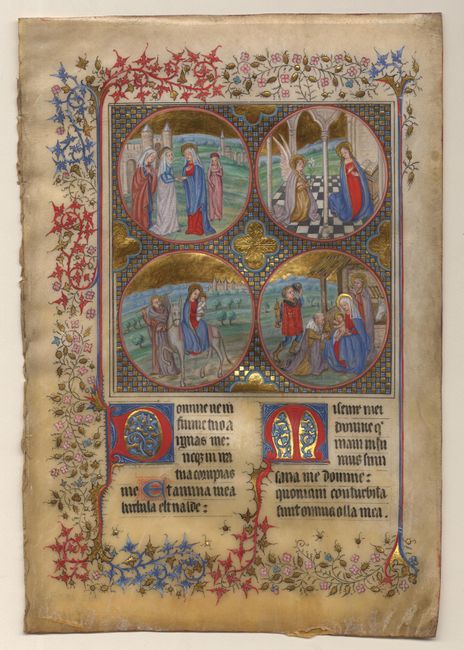 Domine ne in
furore tuo a
rguas me:
neq in ira
tua corripias
me Et anima mea
turbata est valde:
Miserere mei
domine q
niam infir
mus sum
sana me domine:
quoniam conturbata
sunt omnia ossa mea.